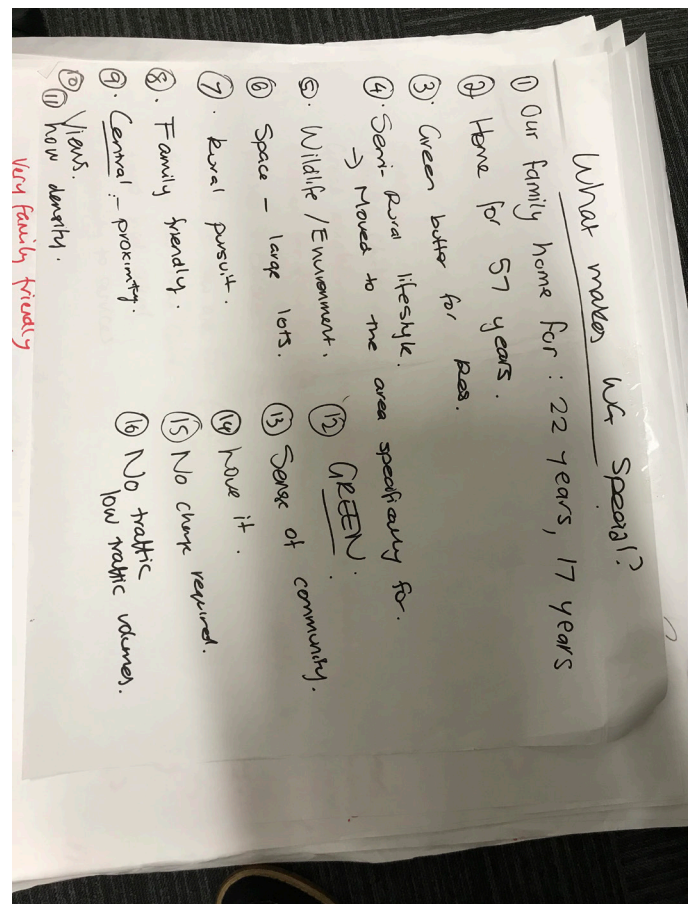 What makes WG Special?
① Our family home for : 22 years, 17 years
② Home for 57 years.
③. Green buffer for Res.
④. Semi-Rural lifestyle.
→ Moved to the area specifically for.
⑤. Wildlife / Environment.
⑥ Space - large lots.
⑦. Rural pursuit.
⑧. Family friendly.
⑨. Central :- proximity.
⑩ Views.
⑪ how density.
⑫ GREEN.
⑬ Sense of community.
⑭ Love it.
⑮ No change required.
⑯ No traffic
low traffic volumes.
Very family friendly